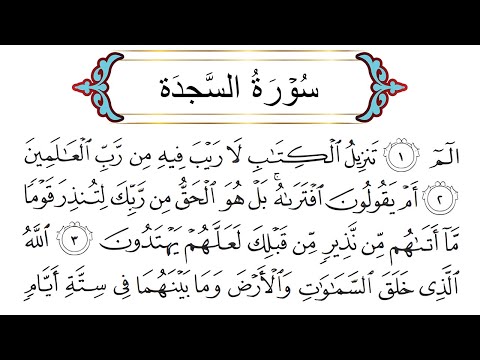 سُورَةُ السَّجْدَة
الٓمٓ ١ تَنزِيلُ ٱلْكِتَٰبِ لَا رَيْبَ فِيهِ مِن رَّبِّ ٱلْعَٰلَمِينَ
٢ أَمْ يَقُولُونَ ٱفْتَرَىٰهُ ۚ بَلْ هُوَ ٱلْحَقُّ مِن رَّبِّكَ لِتُنذِرَ قَوْمًا
مَّآ أَتَىٰهُم مِّن نَّذِيرٍ مِّن قَبْلِكَ لَعَلَّهُمْ يَهْتَدُونَ ٣ ٱللَّهُ
ٱلَّذِى خَلَقَ ٱلسَّمَٰوَٰتِ وَٱلْأَرْضَ وَمَا بَيْنَهُمَا فِى سِتَّةِ أَيَّامٍ